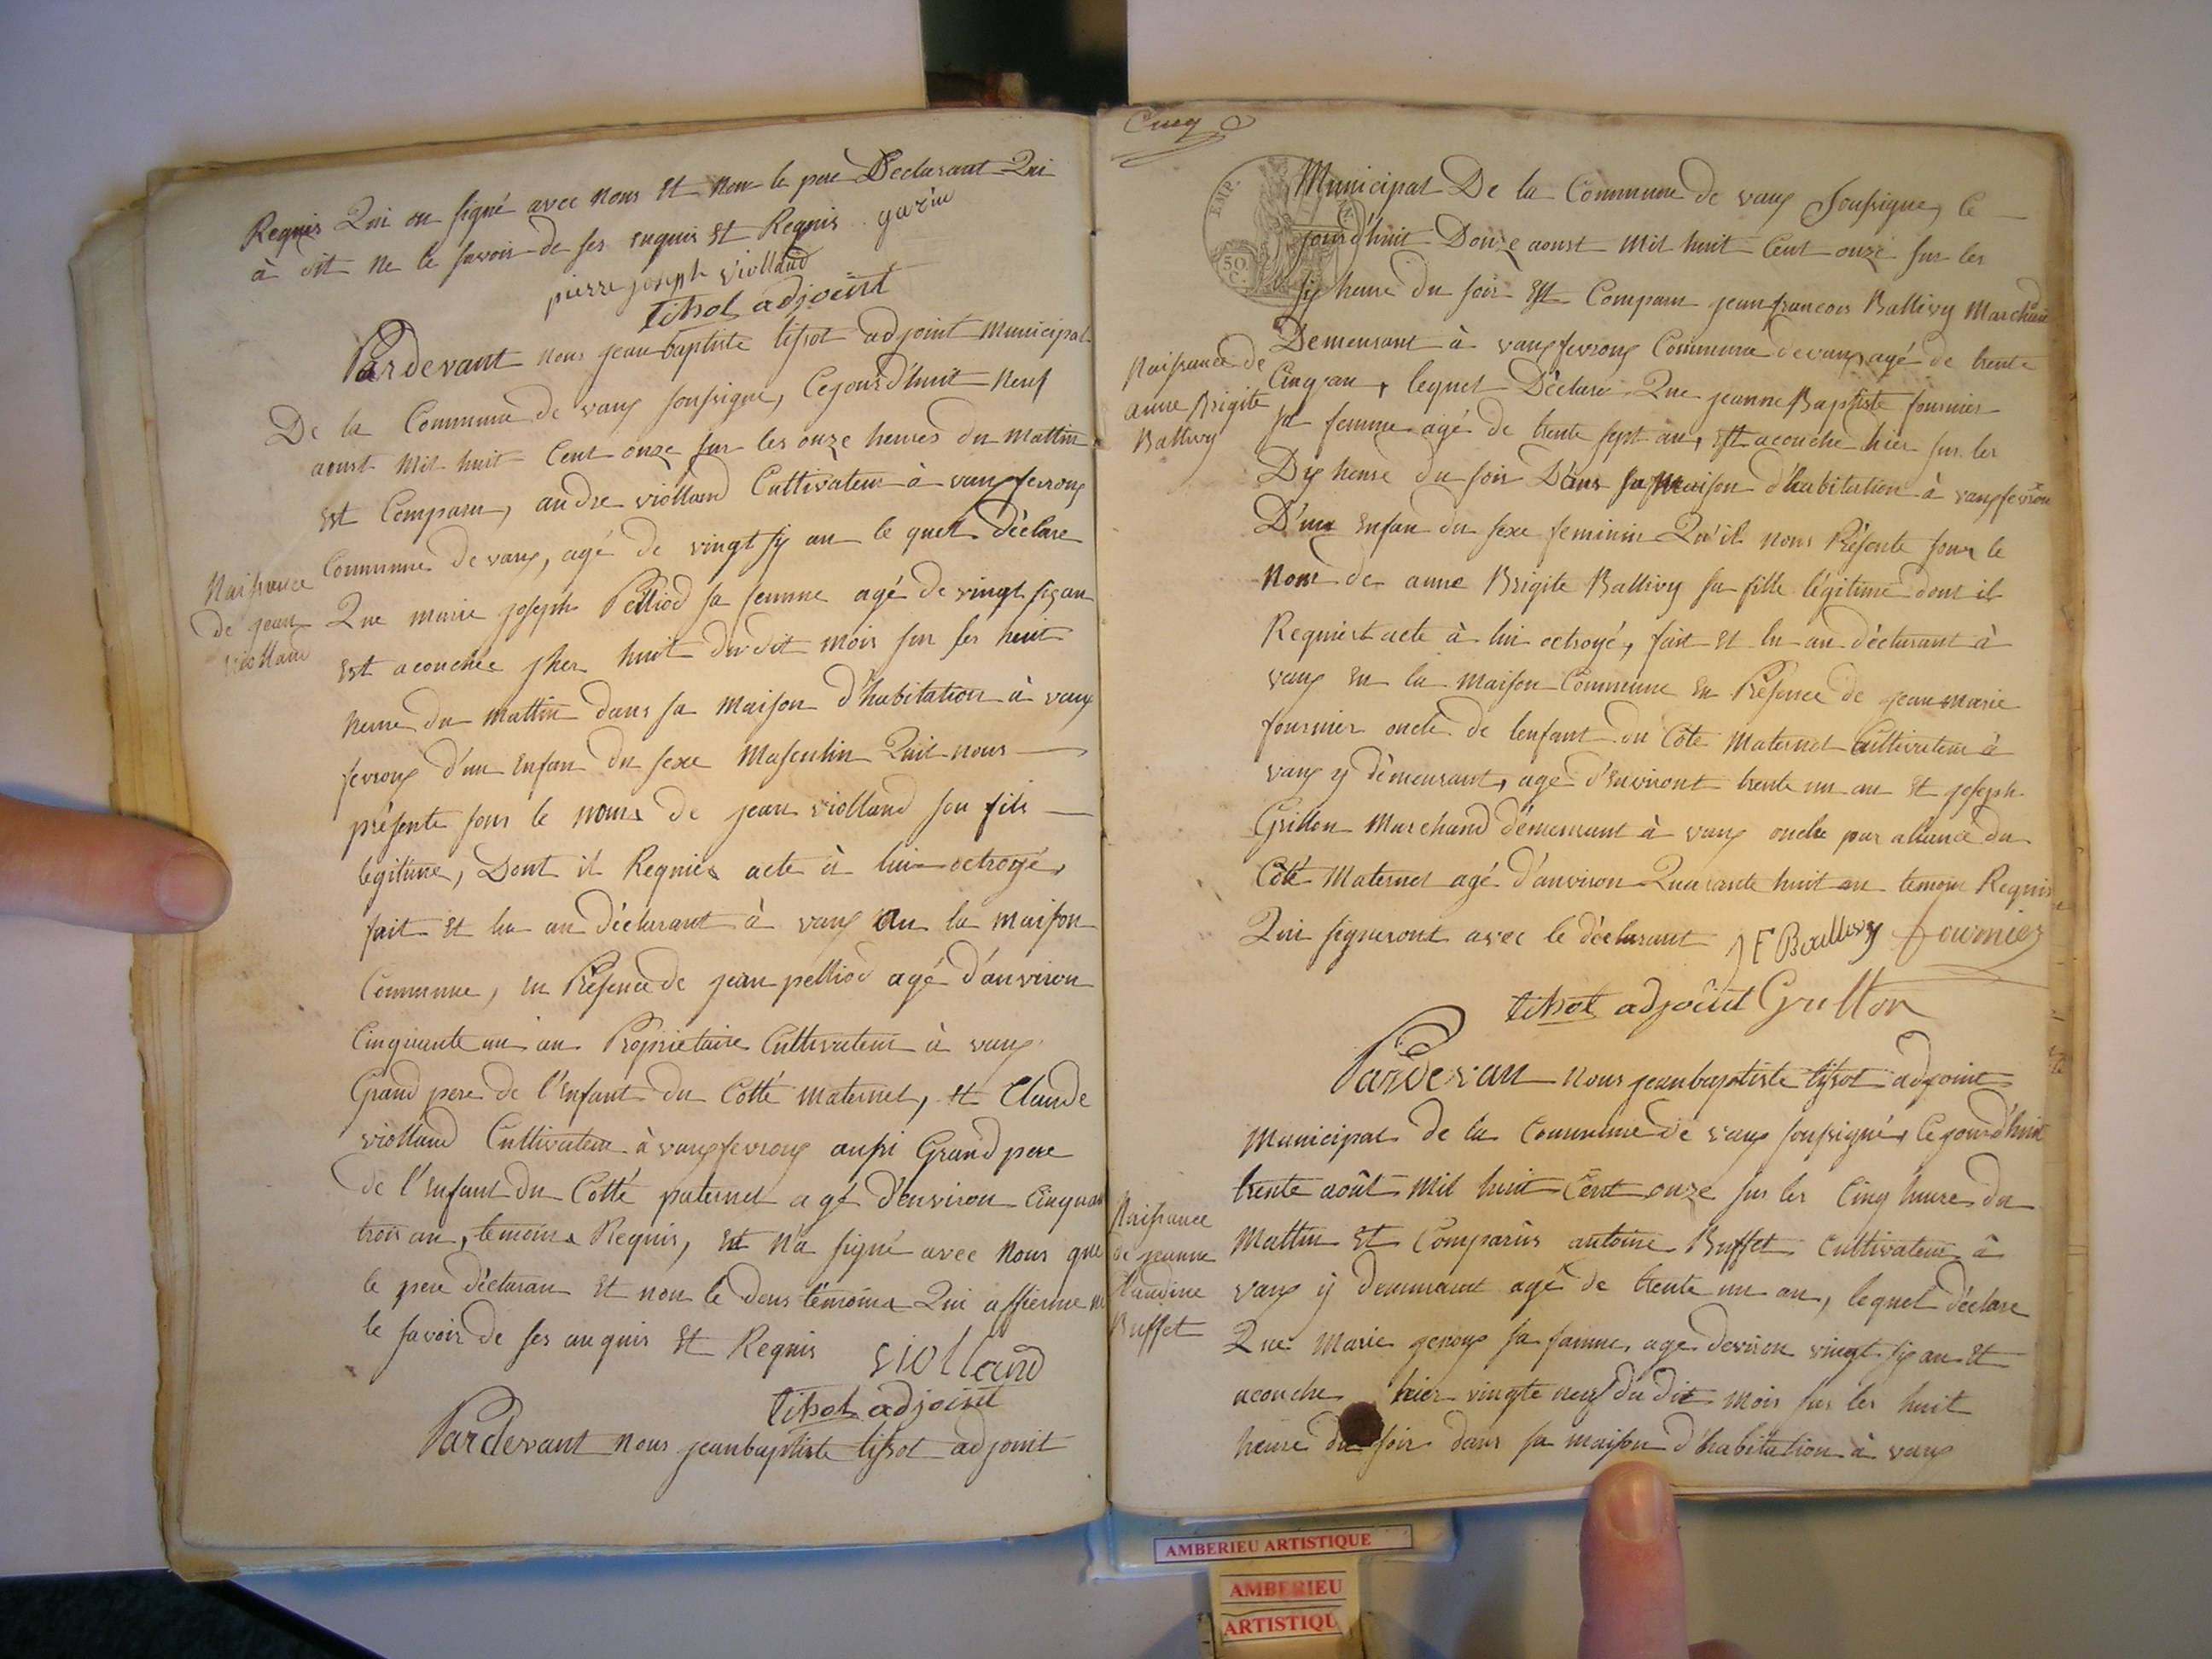 Requis Qui on signé avec nous Et non le pere Declarant Qui
à dit ne le savoir de ses enquis Et Requis garin
pierre joseph Violland
tissot adjoint
Pardevant nous jean baptiste tissot adjoint Municipal
De la Commune de vaux soussigne, Cejourd'huit Neuf
aoust Mil huit Cent onze sur les onze heures du Mattin
Est Comparu, andre violland Cultivateur à vaux fevroux
Commune de vaux, agé de vingt six an le quel déclare
Naissance
de jean
violland
Que marie joseph Pelliod sa femme agé de vingt six an
Est acouchée jher huit du dit mois sur les huit
heure du mattin dans sa maison d'habitation à vaux
fevroux d'un Enfan du sexe Masculin Quil nous
présente sous le noms de jean violland son fils
legitime, Dont il Requier acte à lui octroyé,
fait Et lu au déclarant à vaux du la maison
Commune, en Présence de jean pelliod agé d'anviron
Cinquante un an Propriétaire Cultivateur à vaux
Grand pere de l'Enfant du Cotté maternel, Et Claude
violland Cultivateur à vaux fevroux aussi Grand pere
de l'Enfant du Cotté paternel agé d'environ Cinquan
trois an, temoins Requis, Et n'a signé avec nous que
le pere déclaran Et non le deus témoins Qui affierme ne
le savoir de ses anquis Et Requis violland
tissot adjoint
Pardevant nous jean baptiste tissot adjoint
Cinq
EMP.
50 C.
Municipal De la Commune de vaux soussigne, Ce
jourd'huit Douze aoust Mil huit Cent onze sur les
six heure du soir Est Comparu jean francois Ballivy Marchand
Demeurant à vaux fevroux Commune de vaux agé de trente
Naissance de
anne Brigite
Ballivy
Cinq an, lequel Déclare Que jeanne Baptiste fournier
sa femme agé de trente sept an, Est acouche hier sur les
Dix heure du soir Dans sa Maison d'habitation à vaux fevrou
D'un Enfan du sexe feminin Qu'il nous Présente sous le
Nom de anne Brigite Ballivy sa fille légitime dont il
Requiert acte à lui octroyé, fait Et lu au déclarant à
vaux En la maison Commune En Présence de jean marie
fournier oncle de lenfant du Côté Maternel Cultivateur à
vaux y démeurant, agé d'environt trente un an Et joseph
Grillon Marchand démeurant à vaux oncle par aliance du
Côté Maternel agé d'anviron Quarante huit an temoin Requis
Qui signeront avec le déclarant J F Ballivy fournier
tissot adjoint Grillon
Pardevan nous jean baptiste tissot adjoint
Municipal de la Commune de vaux soussigné, Cejourd'huit
trente août Mil huit Cent onze sur les Cinq heure du
Naissance
de jeanne
Claudine
Buffet
Mattin Et Comparus antoine Buffet Cultivateur à
vaux y demeurant agé de trente un an, lequel déclare
Que Marie genoux sa famme, age deviron vingt six an Et
acouche hier vingte neuf du dit mois sur les huit
heure du soir dans sa maison d'habitation à vaux
AMBERIEU ARTISTIQUE
AMBERIEU
ARTISTIQU